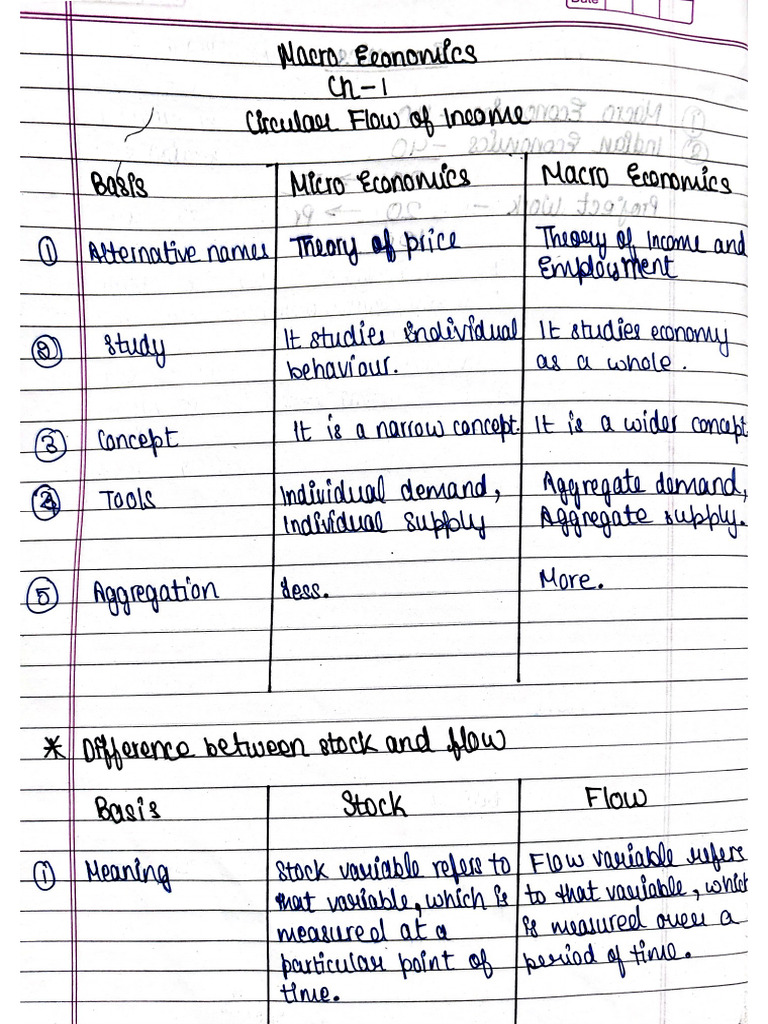 Date
Macro Economics
Ch-1
Circular Flow of Income
Basis | Micro Economics | Macro Economics
① Alternative names | Theory of price | Theory of Income and
Employment
② Study | It studies individual | It studies economy
behaviour. | as a whole.
③ Concept | It is a narrow concept. | It is a wider concept
④ Tools | Individual demand, | Aggregate demand,
Individual supply | Aggregate supply.
⑤ Aggregation | Less. | More.
* Difference between stock and flow
Basis | Stock | Flow
① Meaning | Stock variable refers to | Flow variable refers
that variable, which is | to that variable, which
measured at a | is measured over a
particular point of | period of time.
time.